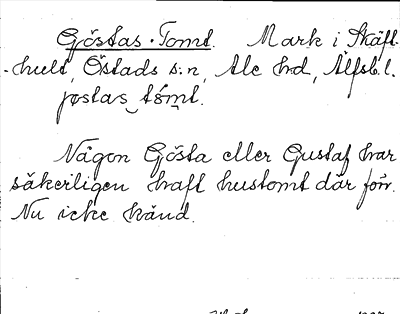 Göstas-Tomt. Mark i Skäft-
-hult, Östads s:n, Ale hd, Älfsb. l.
jøstas tómt.
Någon Gösta eller Gustaf har
säkerligen haft hustomt där förr.
Nu icke känd.